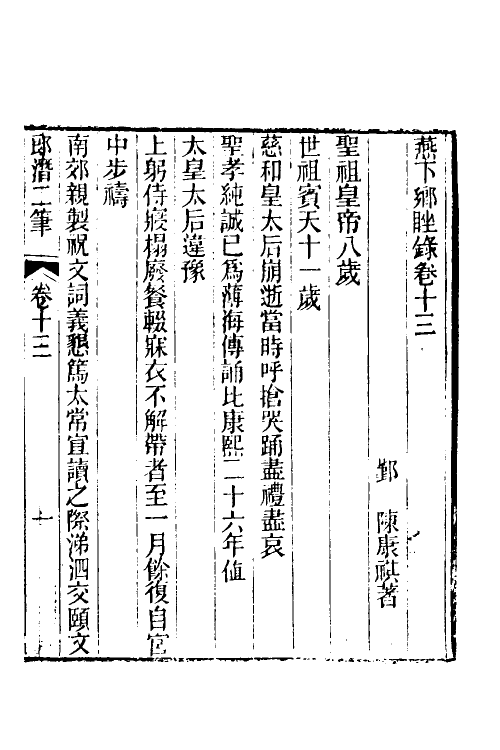 燕下鄉脞錄卷十三
鄞　陳康祺著
聖祖皇帝八歲
世祖賓天十一歲
慈和皇太后崩逝當時呼搶哭踊盡禮盡哀
聖孝純誠已爲薄海傳誦比康熙二十六年值
太皇太后違豫
上躬侍寢榻廢餐輟寐衣不解帶者至一月餘復自宮
中步禱
南郊親製祝文詞義懇篤太常宣讀之際涕泗交頤文
郎潛二筆
卷十三
一